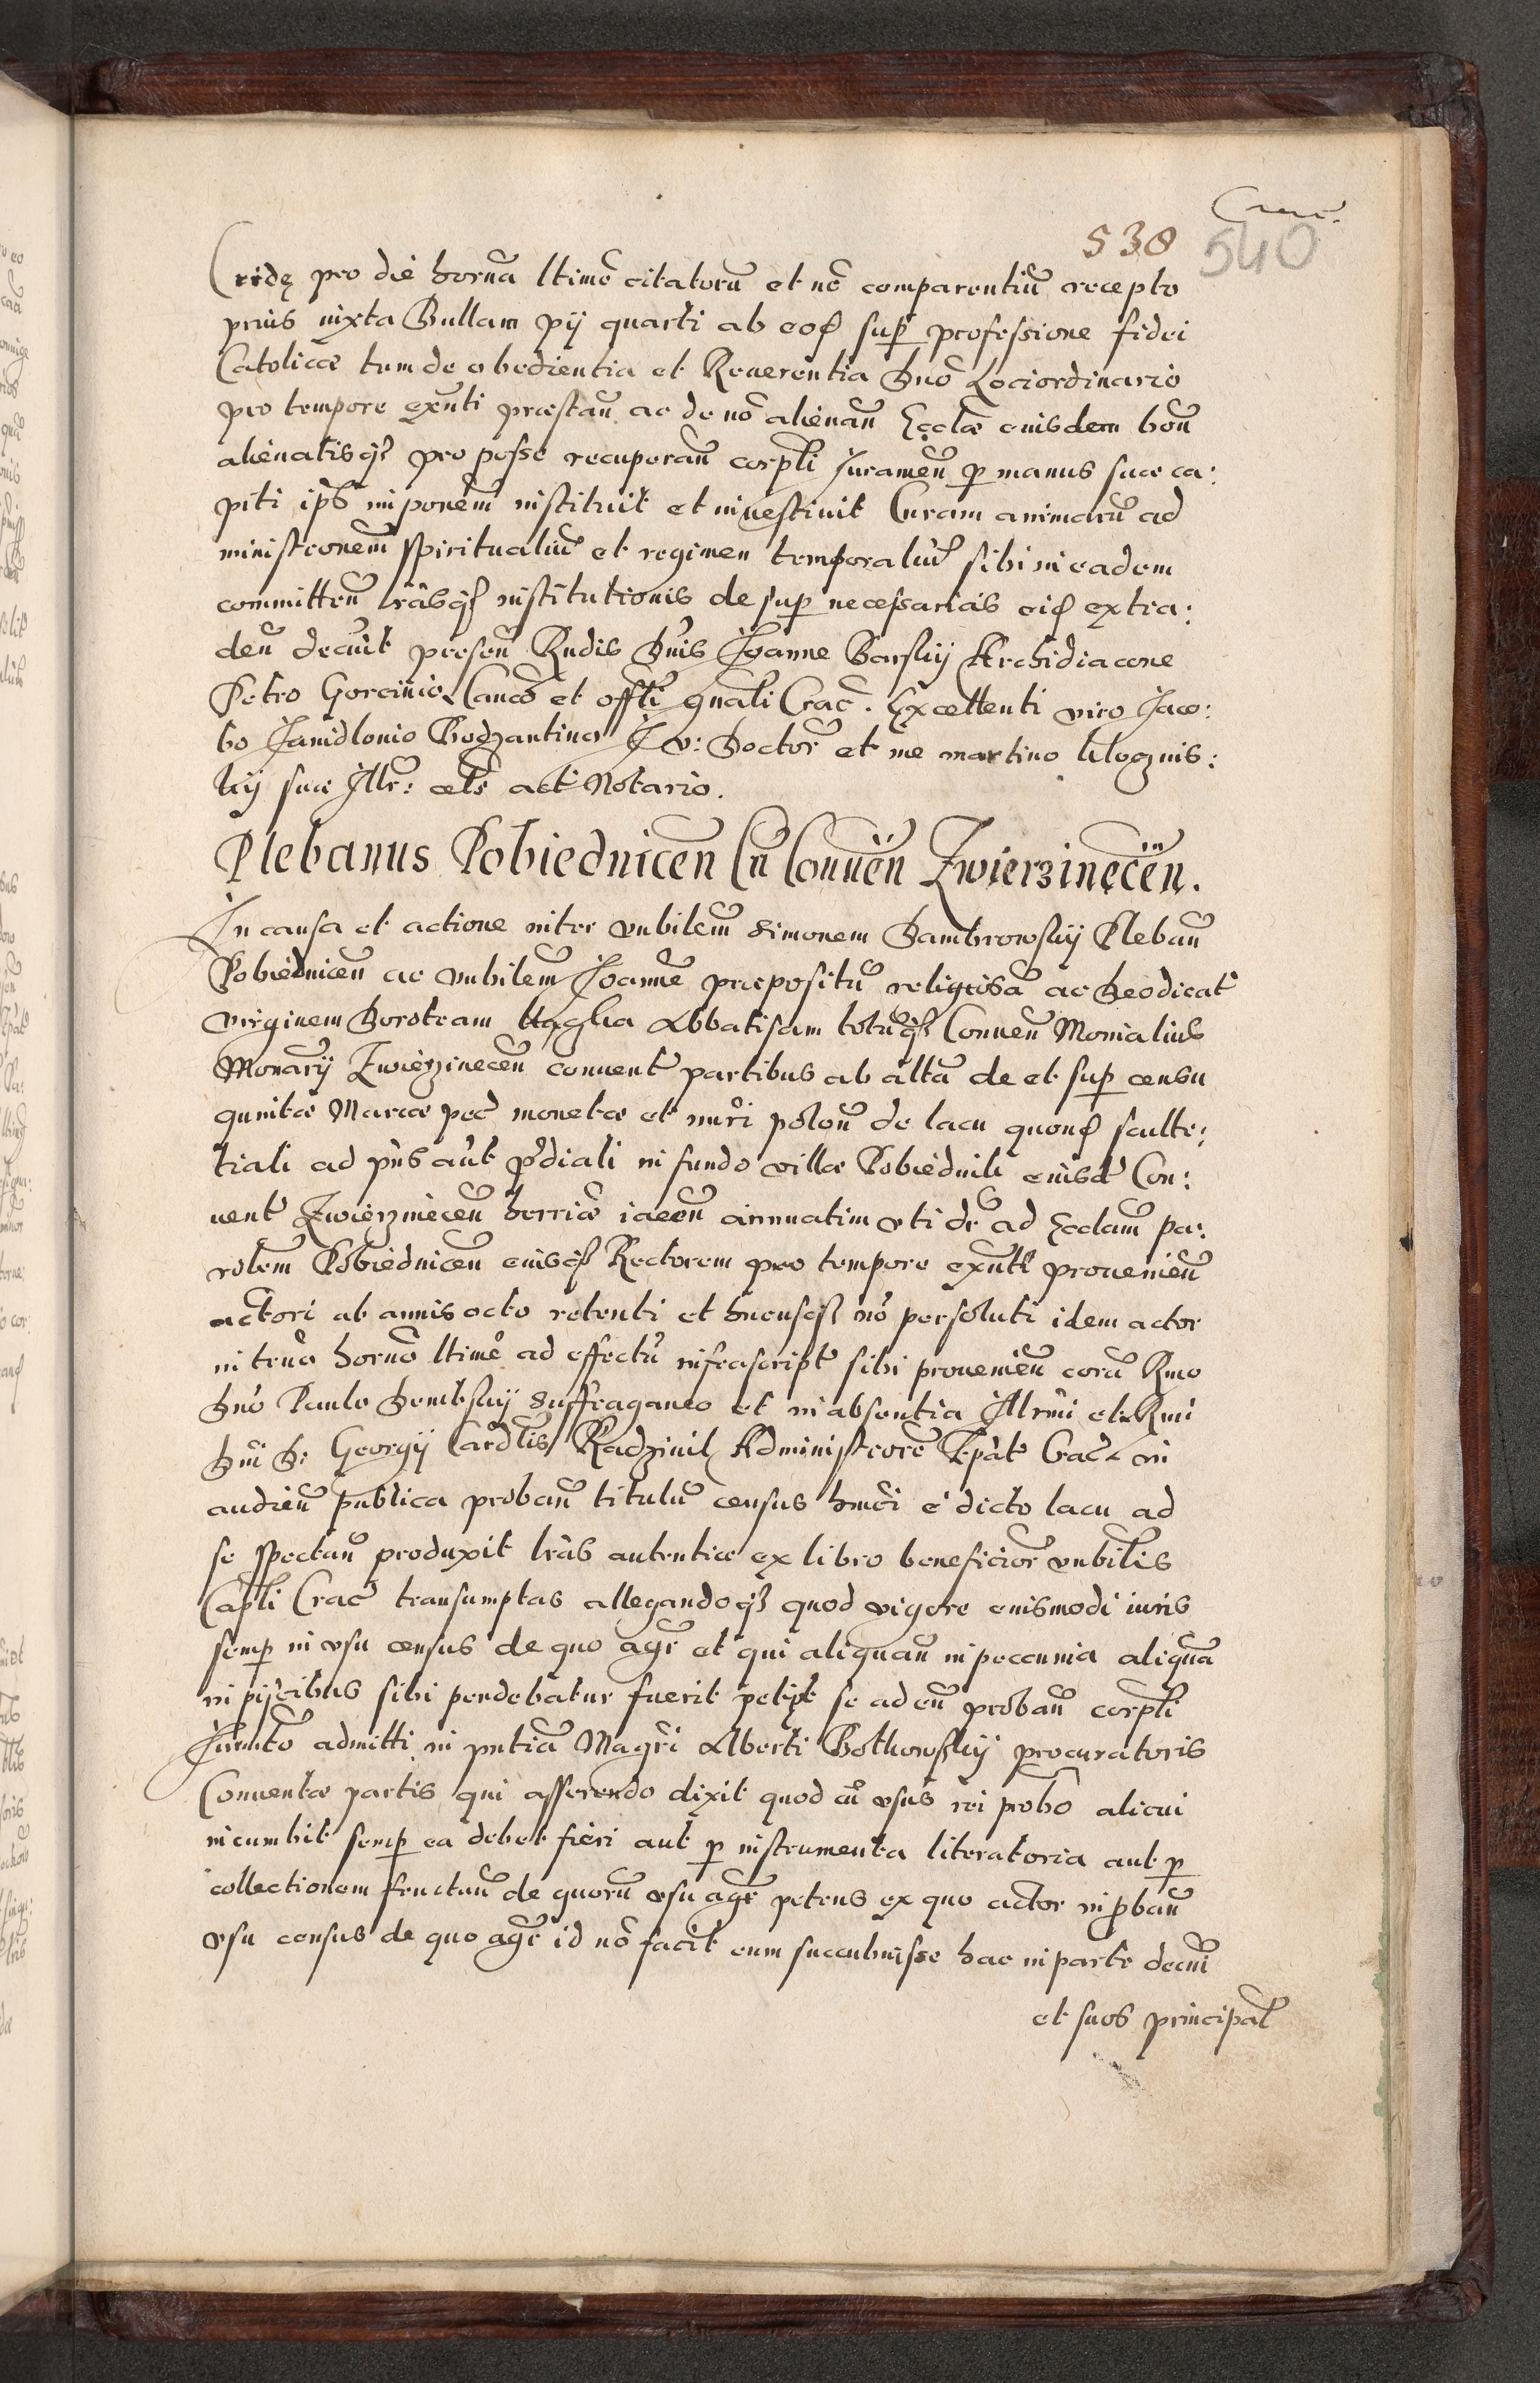 538 540
Cridę pro die hornã ltimẽ citatorũ et nõ comparentiũ recepto
prius iuxta Bullam pij quarti ab eod sup professione fidei
Catolicæ tum de obedientia et Reuerentia Dnõ Lociordinario
pro tempore exñti præstañ ac de nõ alienañ Ecclæ eiusdem boñ
alienatisq3 pro posse recuperañ corpli Jurameñ p manus suæ ca:
piti ips imponem̃ instituit et inuestiuit Curam animarũ ad
ministronem̃ spiritualiũ et regimen temporaliũ sibi in eadem
committeñ lrãsq3 institutionis desup necessarias eid extra:
deñ decuit preseñ Rndis Dnis Joanne Borsky Archidiacono
Petro Gorcinio Cancõ et offli gnali Crac̃. Excellenti viro Jaco:
bo Janidlonio Bodzantino J v: Doctor̃ et me martino
kij suæ Illr: cels act Notario.
Plebanus Pobiednicen̄ Cũ Conuen̄ Zwierzinecen̄.
In causa et actione inter vnbilem̃ Simonem Dambrowskij Plebañ
Pobiedniceñ ac vnbilem̃ Joannẽ præpositũ religiosã ac Deodicat̃
virginem Doroteam Abbatisam totũq3 Conueñ Monialiũ
Monarij Zwierzineceñ conuent̃ partibus ab altã de et sup censu
quintæ Marcæ pec̃ monetæ et nuri poloñ de lacu quond sculte:
tiali ad pñs aũt p̃diali in fundo villæ Pobiednik eiusd̃ Con:
uent̃ Zwierzineceñ hærriẽ iaceñ annuatim vti dr̃ ad Ecclam̃ pa:
rolem̃ Pobiedniceñ eiusq3 Rectorem pro tempore exñti proueñieñ
actori ab annis octo retenti et hucusq3 nõ persoluti idem actor
in tr̃no hornõ ltimẽ ad effectũ infrascript̃ sibi proueñieñ corã Rmo
Dnõ Paulo Dembskij Suffraganeo et in absentia Illrmi et Rmi
Dni D: Georgij Cardlis Radziuil Administrorẽ Epãt̃ Crac̃ in
audieñ publica probañ titulũ census hmõi è dicto lacu ad
se spectañ produxit lrãs autenticæ ex libro beneficior̃ vnbilis
Capli Crac̃ transumptas allegandoq3 quod vigore eiusmodi iuris
semp in vsu census de quo agr̃ et qui aliquañ in peccunia aliquã
in piscibus sibi pendebatur fuerit petijt se ad eũ probañ corpli
Jurmtõ admitti in pñtia Magri Alberti Botkowskij procuratoris
Conuentæ partis qui asserendo dixit quod cũ vsus rei probõ alicui
incumbit semp ea debet fieri aut p instrumenta literatoria aut p
collectionem fructuũ de quorũ vsu agr̃ petens ex quo actor in pbañ
vsu census de quo agr̃ id nõ facit eum succubuisse hac in parte decuĩ
et suos principal̃